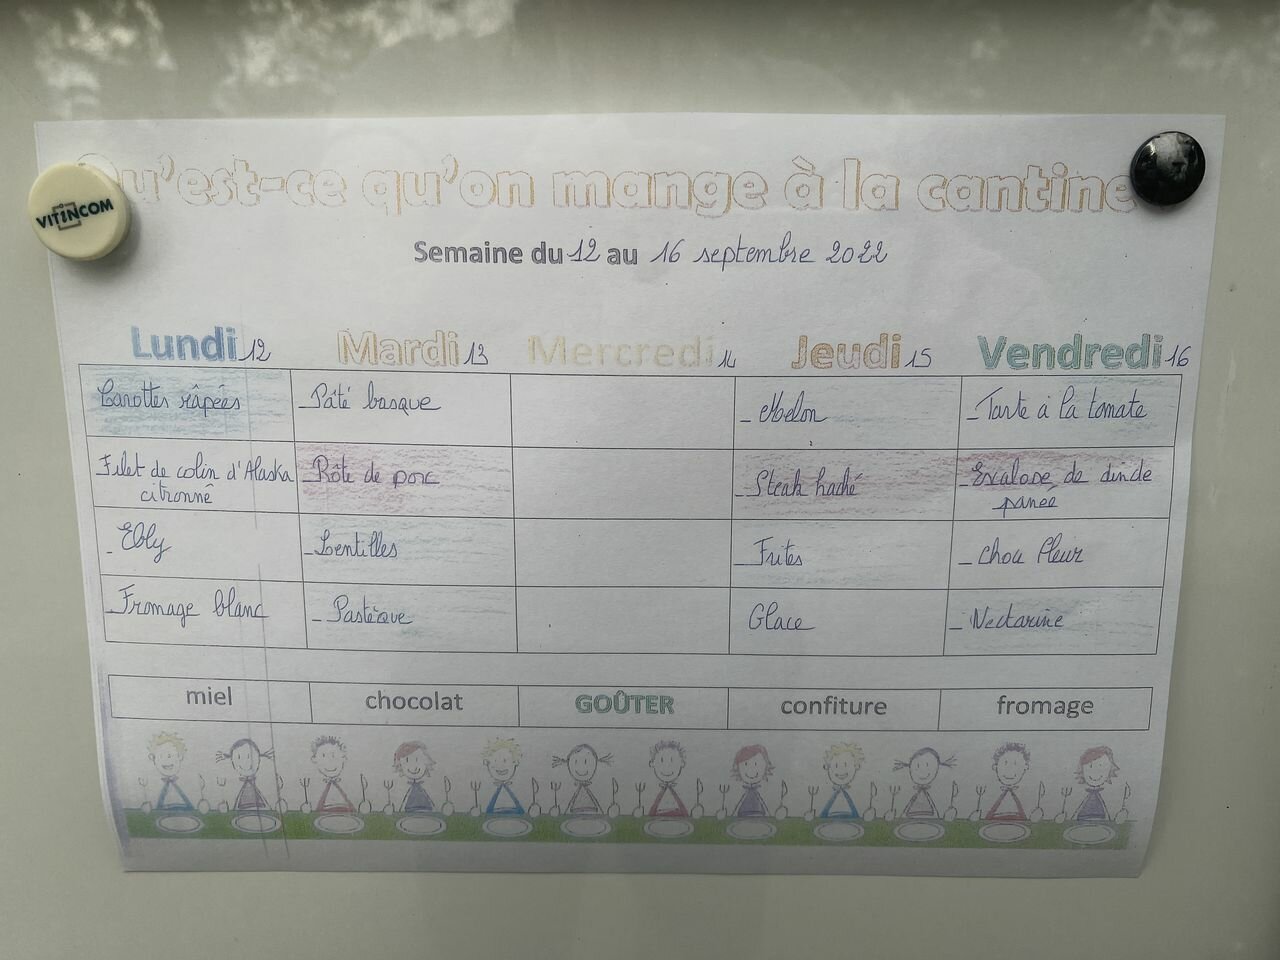 Qu'est-ce qu'on mange à la cantine
VITINCOM
Semaine du 12 au 16 septembre 2022
Lundi 12 Mardi 13 Mercredi 14 Jeudi 15 Vendredi 16
Carottes râpées - Pâté basque - Melon - Tarte à la tomate
Filet de colin d'Alaska - Rôte de porc - Steak haché - Escalope de dinde
citronné panée
- Ebly - Lentilles - Frites - chou fleur
- Fromage blanc - Pastèque Glace - Nectarine
miel chocolat GOÛTER confiture fromage